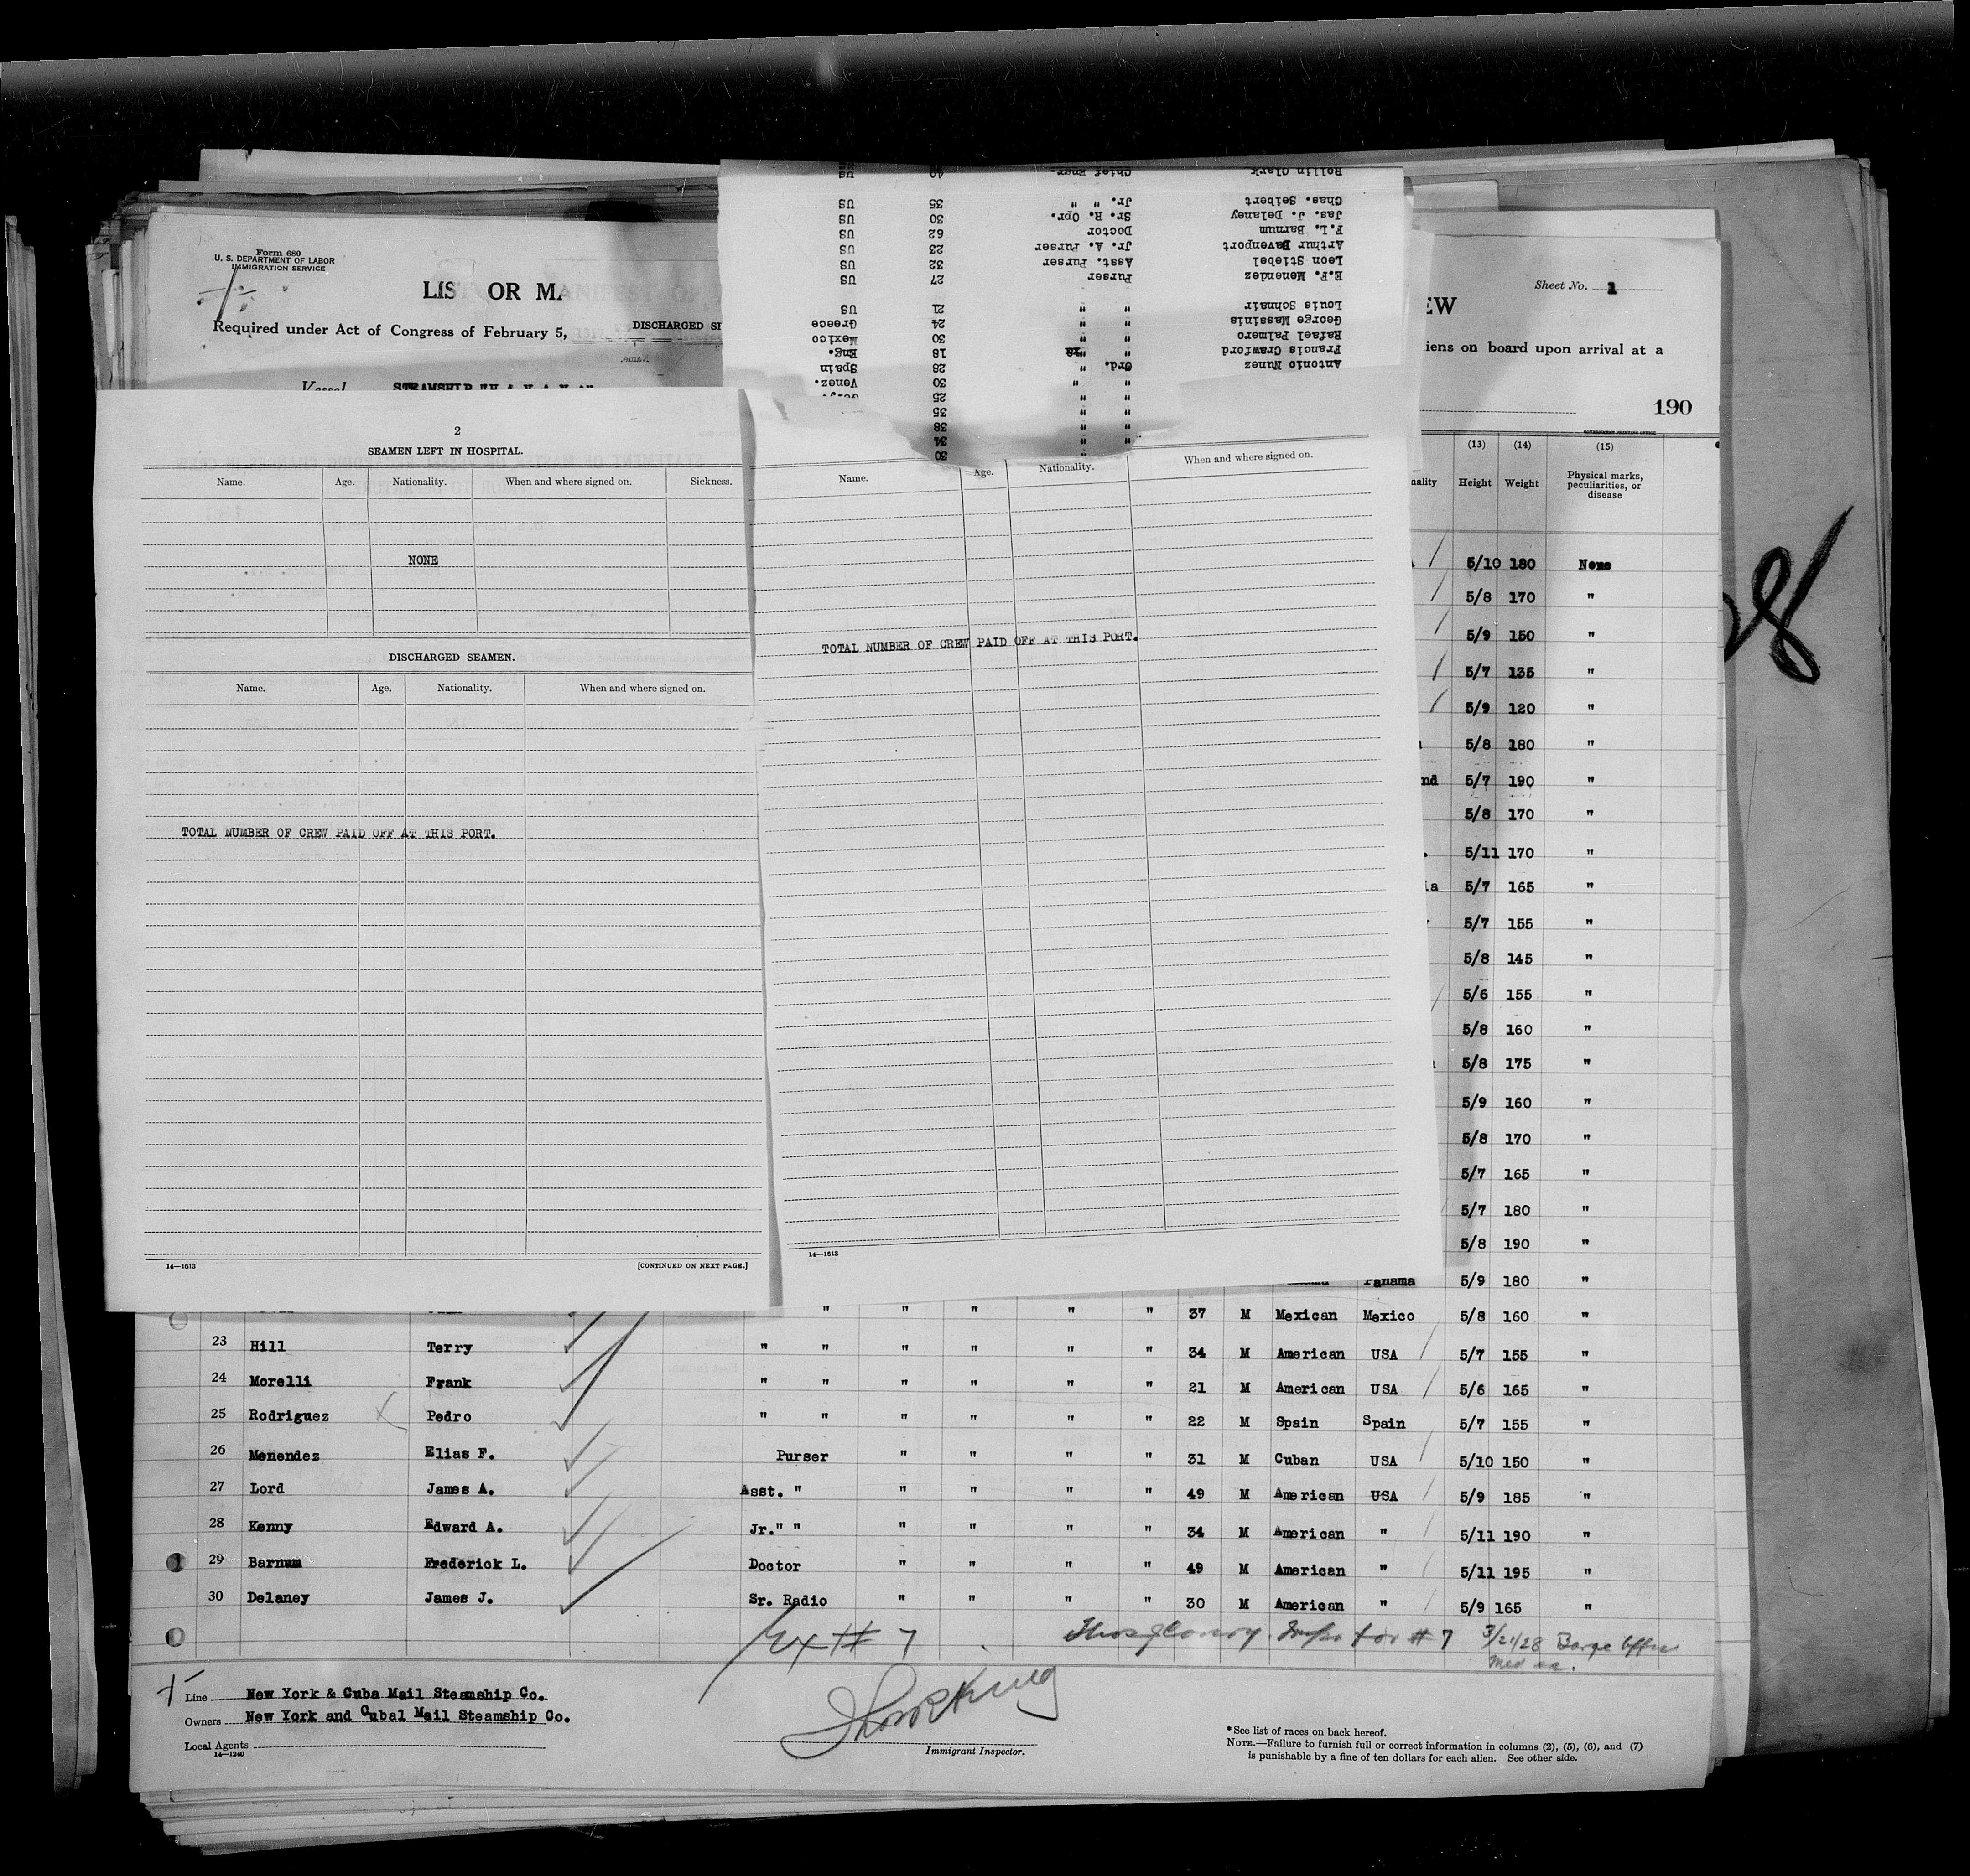 Form 680
U. S. DEPARTMENT OF LABOR
IMMIGRATION SERVICE
LIST OR MANIFEST OF
Required under Act of Congress of February 5,
DISCHARGED SE
Vessel STEAMSHIP
EW
Sheet No. 1
liens on board upon arrival at a
190
GOVERNMENT PRINTING OFFICE
Rollin Clark Chief Engr. 40 US
Chas. Seibert Jr. " " 35 US
Jas. J. Delaney Sr. R. Opr. 30 US
F.L. Barnum Doctor 62 US
Arthur Davenport Jr. A. Purser 23 US
Leon Stiebel Asst. Purser 32 US
E.F. Menendez Purser 27 US
Louis Schnair " " 21 US
George Massinis " " 24 Greece
Rafael Palmero " " 30 Mexico
Francis Crawford " " 18 Eng.
Antonio Nunez Ord. " 28 Spain
" " 30 Venez.
" " 25
" " 35
" " 38
" " 34
" " 30
2
SEAMEN LEFT IN HOSPITAL.
Name. Age. Nationality. When and where signed on. Sickness.
NONE
DISCHARGED SEAMEN.
Name. Age. Nationality. When and where signed on.
TOTAL NUMBER OF CREW PAID OFF AT THIS PORT.
14—1613 [CONTINUED ON NEXT PAGE.]
Name. Age. Nationality. When and where signed on.
TOTAL NUMBER OF CREW PAID OFF AT THIS PORT.
14—1613
(13) (14) (15)
nality Height Weight Physical marks, peculiarities, or disease
5/10 180 None
5/8 170 "
5/9 150 "
5/7 135 "
5/9 120 "
5/8 180 "
nd 5/7 190 "
5/8 170 "
5/11 170 "
la 5/7 165 "
5/7 155 "
5/8 145 "
5/6 155 "
5/8 160 "
5/8 175 "
5/9 160 "
5/8 170 "
5/7 165 "
5/7 180 "
5/8 190 "
Panama 5/9 180 "
" " " " " 37 M Mexican Mexico 5/8 160 "
23 Hill Terry " " " " " " 34 M American USA 5/7 155 "
24 Morelli Frank " " " " " " 21 M American USA 5/6 165 "
25 Rodriguez Pedro " " " " " " 22 M Spain Spain 5/7 155 "
26 Menendez Elias F. Purser " " " " 31 M Cuban USA 5/10 150 "
27 Lord James A. Asst. " " " " " 49 M American USA 5/9 185 "
28 Kenny Edward A. Jr." " " " " " 34 M American " 5/11 190 "
29 Barnum Frederick L. Doctor " " " " 49 M American " 5/11 195 "
30 Delaney James J. Sr. Radio " " " " 30 M American " 5/9 165 "
Ex # 7 # 7 3/21/28 Barge Office
28
Line New York & Cuba Mail Steamship Co.
Owners New York and Cubal Mail Steamship Co.
Local Agents
14—1240
Immigrant Inspector.
*See list of races on back hereof.
NOTE.—Failure to furnish full or correct information in columns (2), (5), (6), and (7)
is punishable by a fine of ten dollars for each alien. See other side.